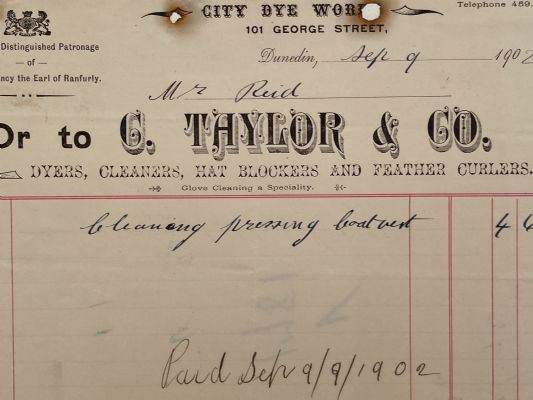 CITY DYE WOR
Telephone 459.
101 GEORGE STREET,
Distinguished Patronage
— of —
ncy the Earl of Ranfurly.
Dunedin, Sep 9 1902
Mr Reid
Dr to C. TAYLOR & CO.
DYERS, CLEANERS, HAT BLOCKERS AND FEATHER CURLERS.
Glove Cleaning a Speciality.
Cleaning pressing coat vest 4 6
Paid Sep 9/9/1902